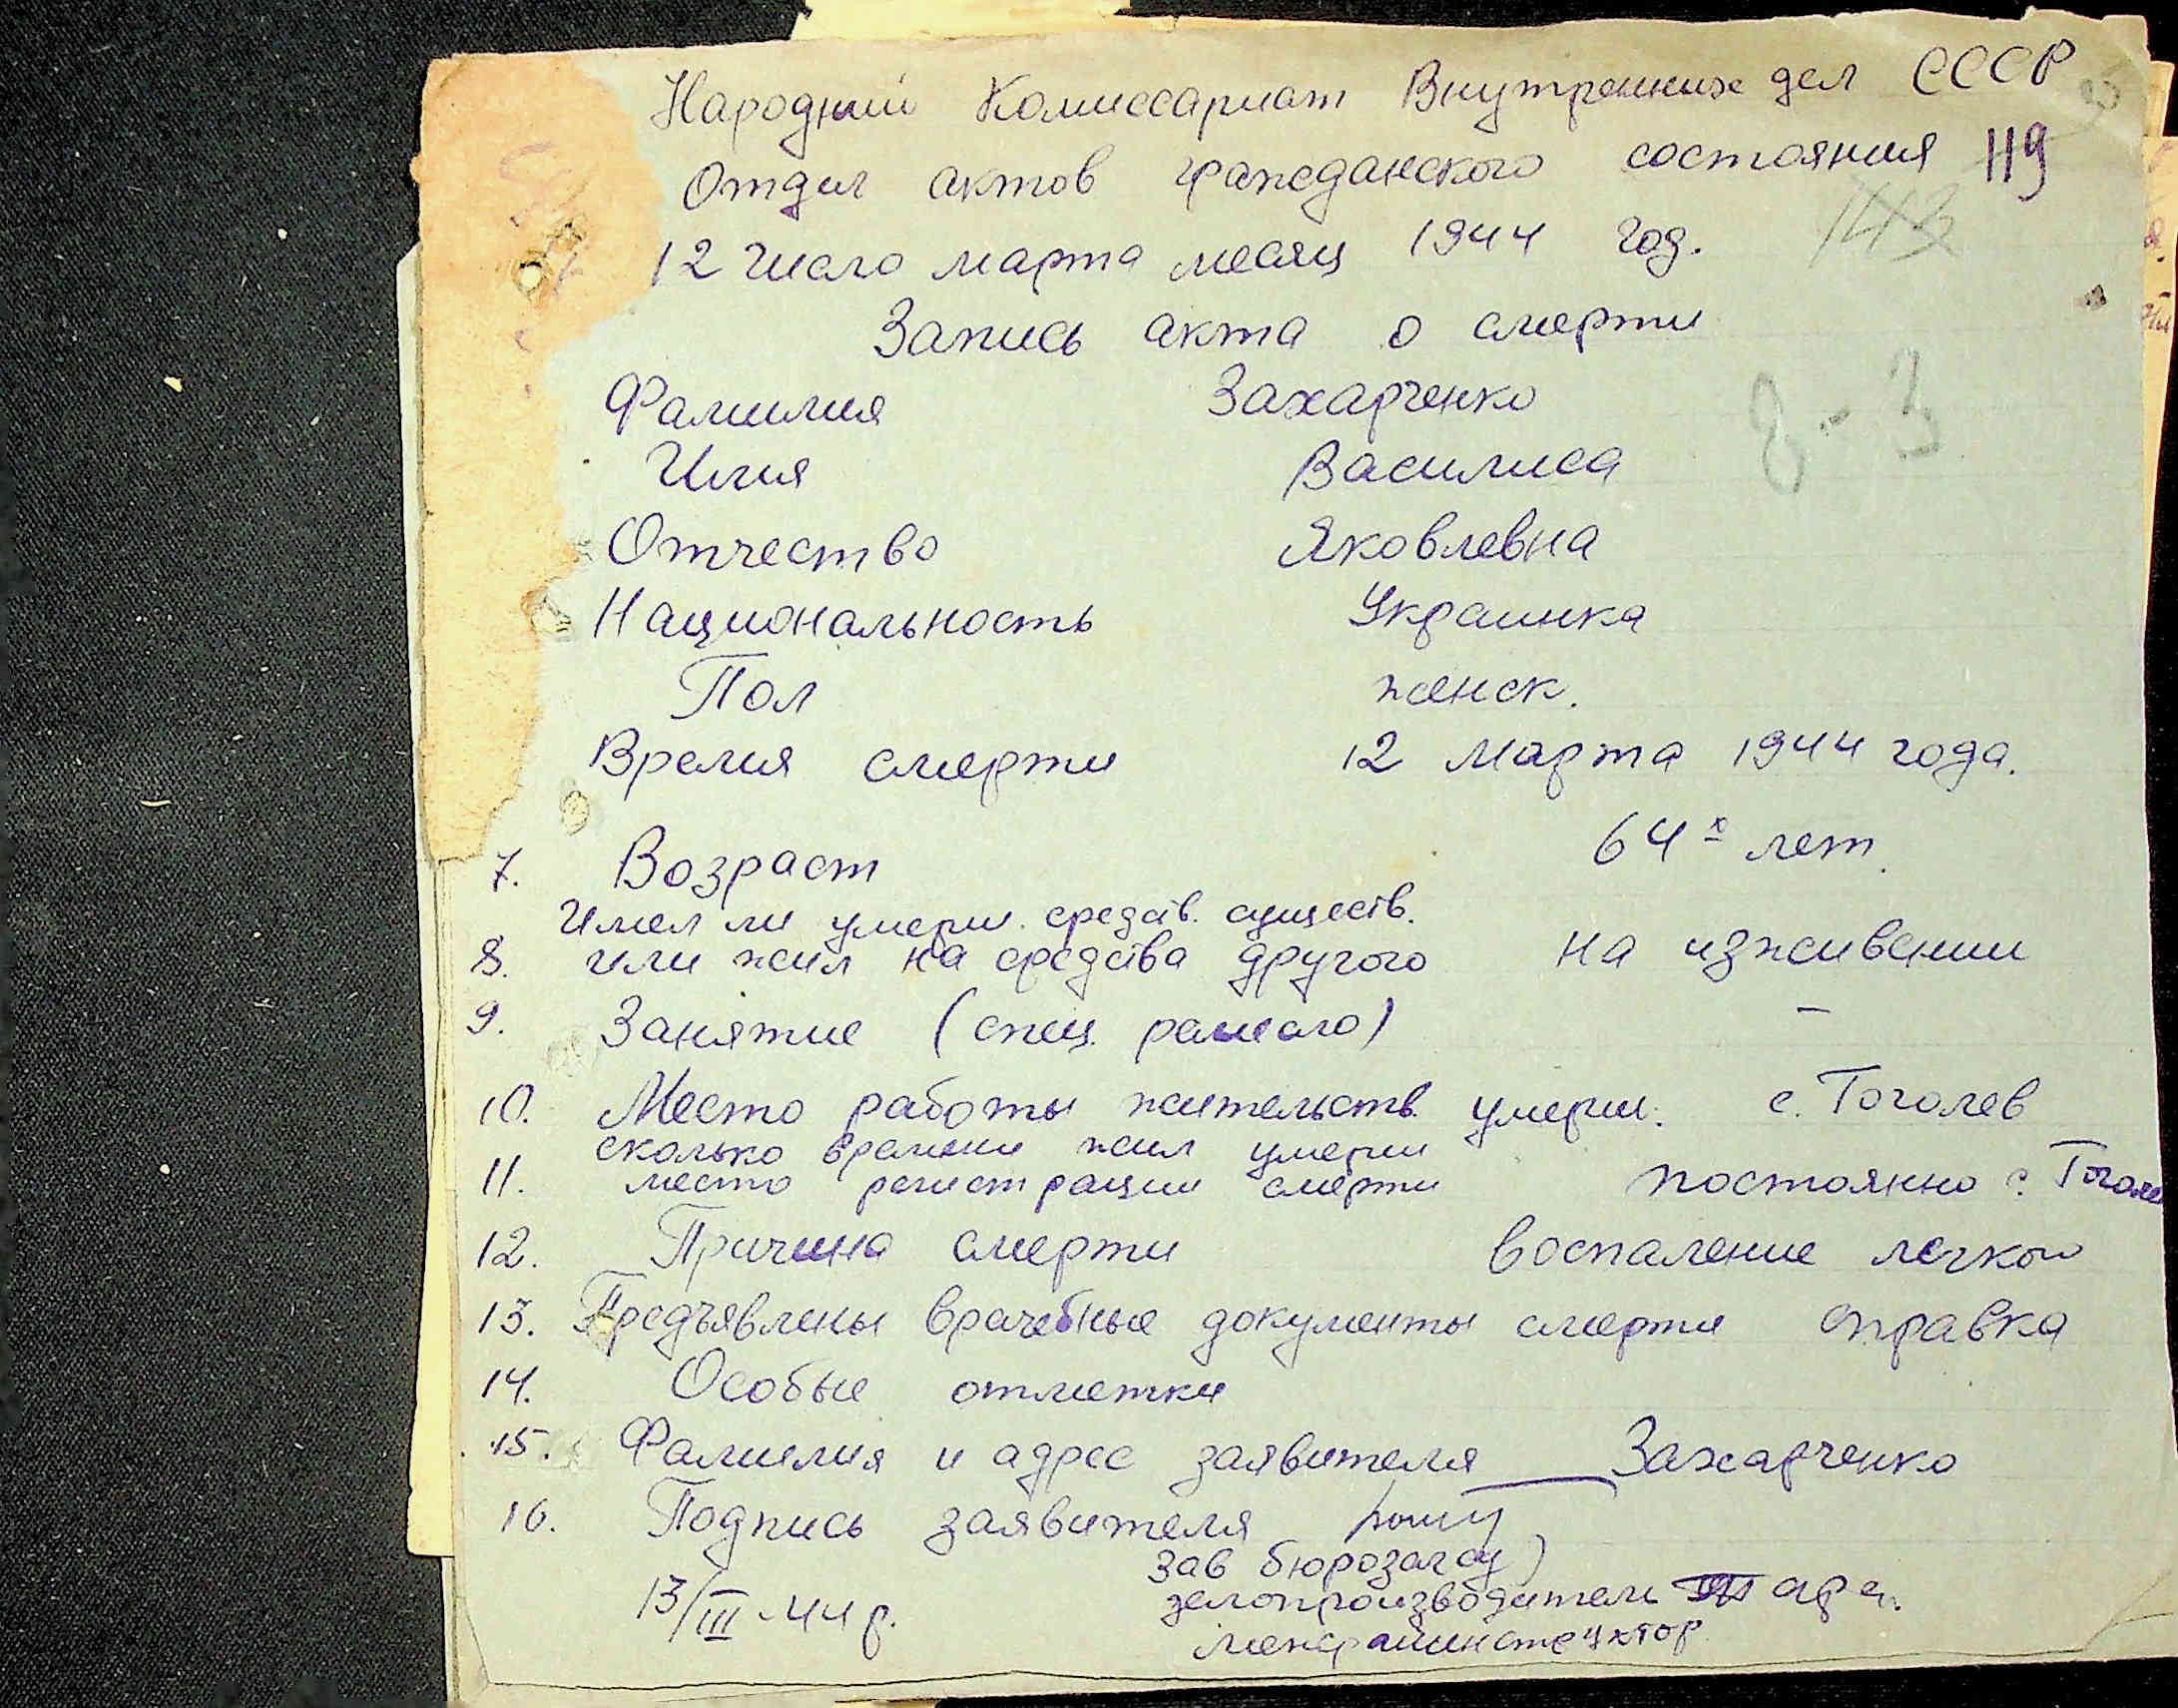 Народний Комиссариат Внутренних дел СССР
Отдел актов гражданского состояния 119
143
12 число марта месяц 1944 год.
Запись акта о смерти
Фамилия Захарченко
8-3
Имя Василиса
Отчество Яковлевна
Национальность Украинка
Пол женск.
Время смерти 12 марта 1944 года.
7. Возраст 64х лет.
Имел ли умерш. средств. существ.
8. или жил на средства другого на изживении
9. Занятие (спец. ремесло) –
10. Место работы жительств. умерш. с. Гоголев
сколько времени жил умерш
11. место регистрации смерти постоянно с. Гоголе
12. Причина смерти воспаление легкой
13. Предъявлены врачебные документы смерти справка
14. Особые отметки
15. Фамилия и адрес заявителя Захарченко
16. Подпись заявителя
зав бюрозагсу)
13/III-44 р. делопроизводитель